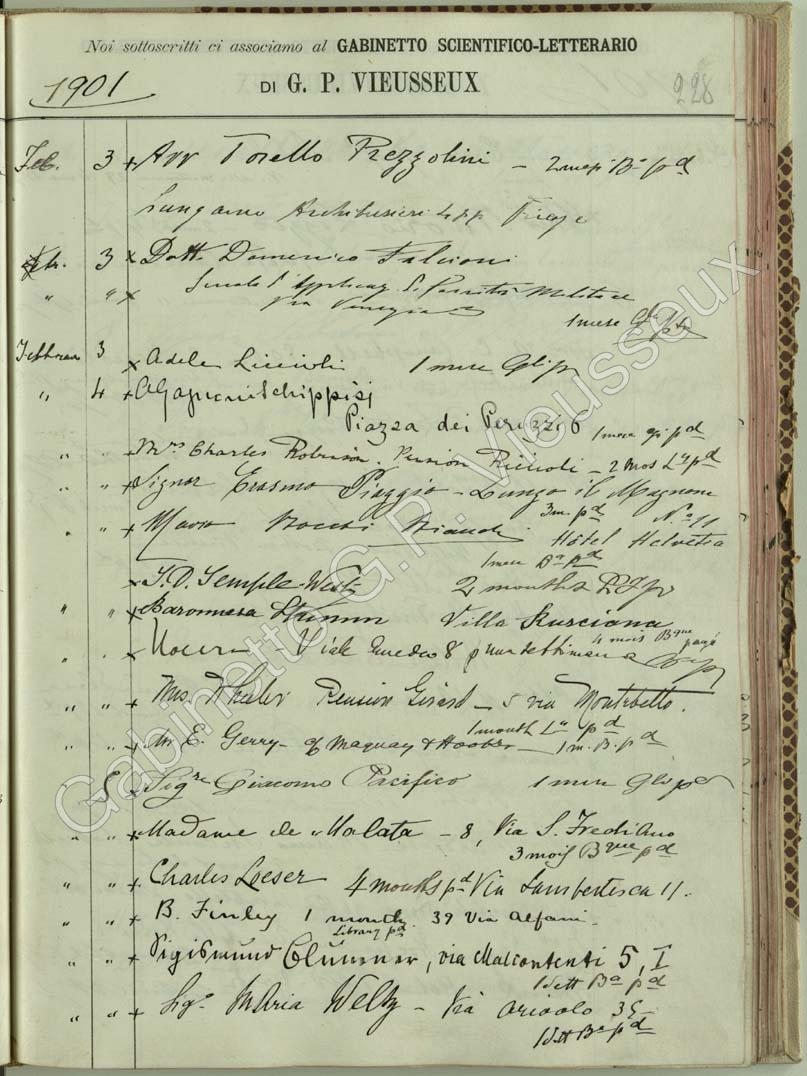 Noi sottoscritti ci associamo al GABINETTO SCIENTIFICO-LETTERARIO
1901 DI G. P. VIEUSSEUX 228
Feb. 3 x Avv Torello Prezzolini - 2 mesi Ba pd
Lungarno Archibusieri 4 pp Firenze
3 x Dott. Domenico Falcioni
" " x Scuola d'Applicaz. di Sanità Militare
Via Venezia
1 mese pd
Febbraio 3 x Adele 1 mese
" 4 x
Piazza dei Peruzzi 6 1 mese pd
" " x Mrs Charles Robinson. Pension Riccioli - 2 mos Ly pd
" " x Signor Erasmo Piaggio - Lungo il Mugnone
3 m. pd No 11
" " x Mario Bianchi Hôtel Helvetia
1 mese Ba pd
x T. D. Temple-West 2 months
" " x Baronnesa Stumm Villa Rusciana
4 mois Bque payé
" . x Nocera - Viale Amedeo 8 p una settimana
" " x Mrs Wheeler Pension Girard - 5 via Montebello.
1 month Ly pd
" " x Mr E. Gerry - of Maquay & Hooker - 1 m. B. pd
" 5 x Sigre Giacomo Pacifico 1 mese pd
" " x Madame de Malata - 8, Via S. Frediano
3 mois Bque pd
" " x Charles Loeser 4 months pd Via Lambertesca 11.
" " x B. Finley 1 month 39 Via Alfani.
Library pd
" " x Sigismund , via Malcontenti 5, I
1 sett Ba pd
" " x Siga Maria Weltz - Via Oriolo 35 -
1 sett Ba pd
Gabinetto G.P. Vieusseux